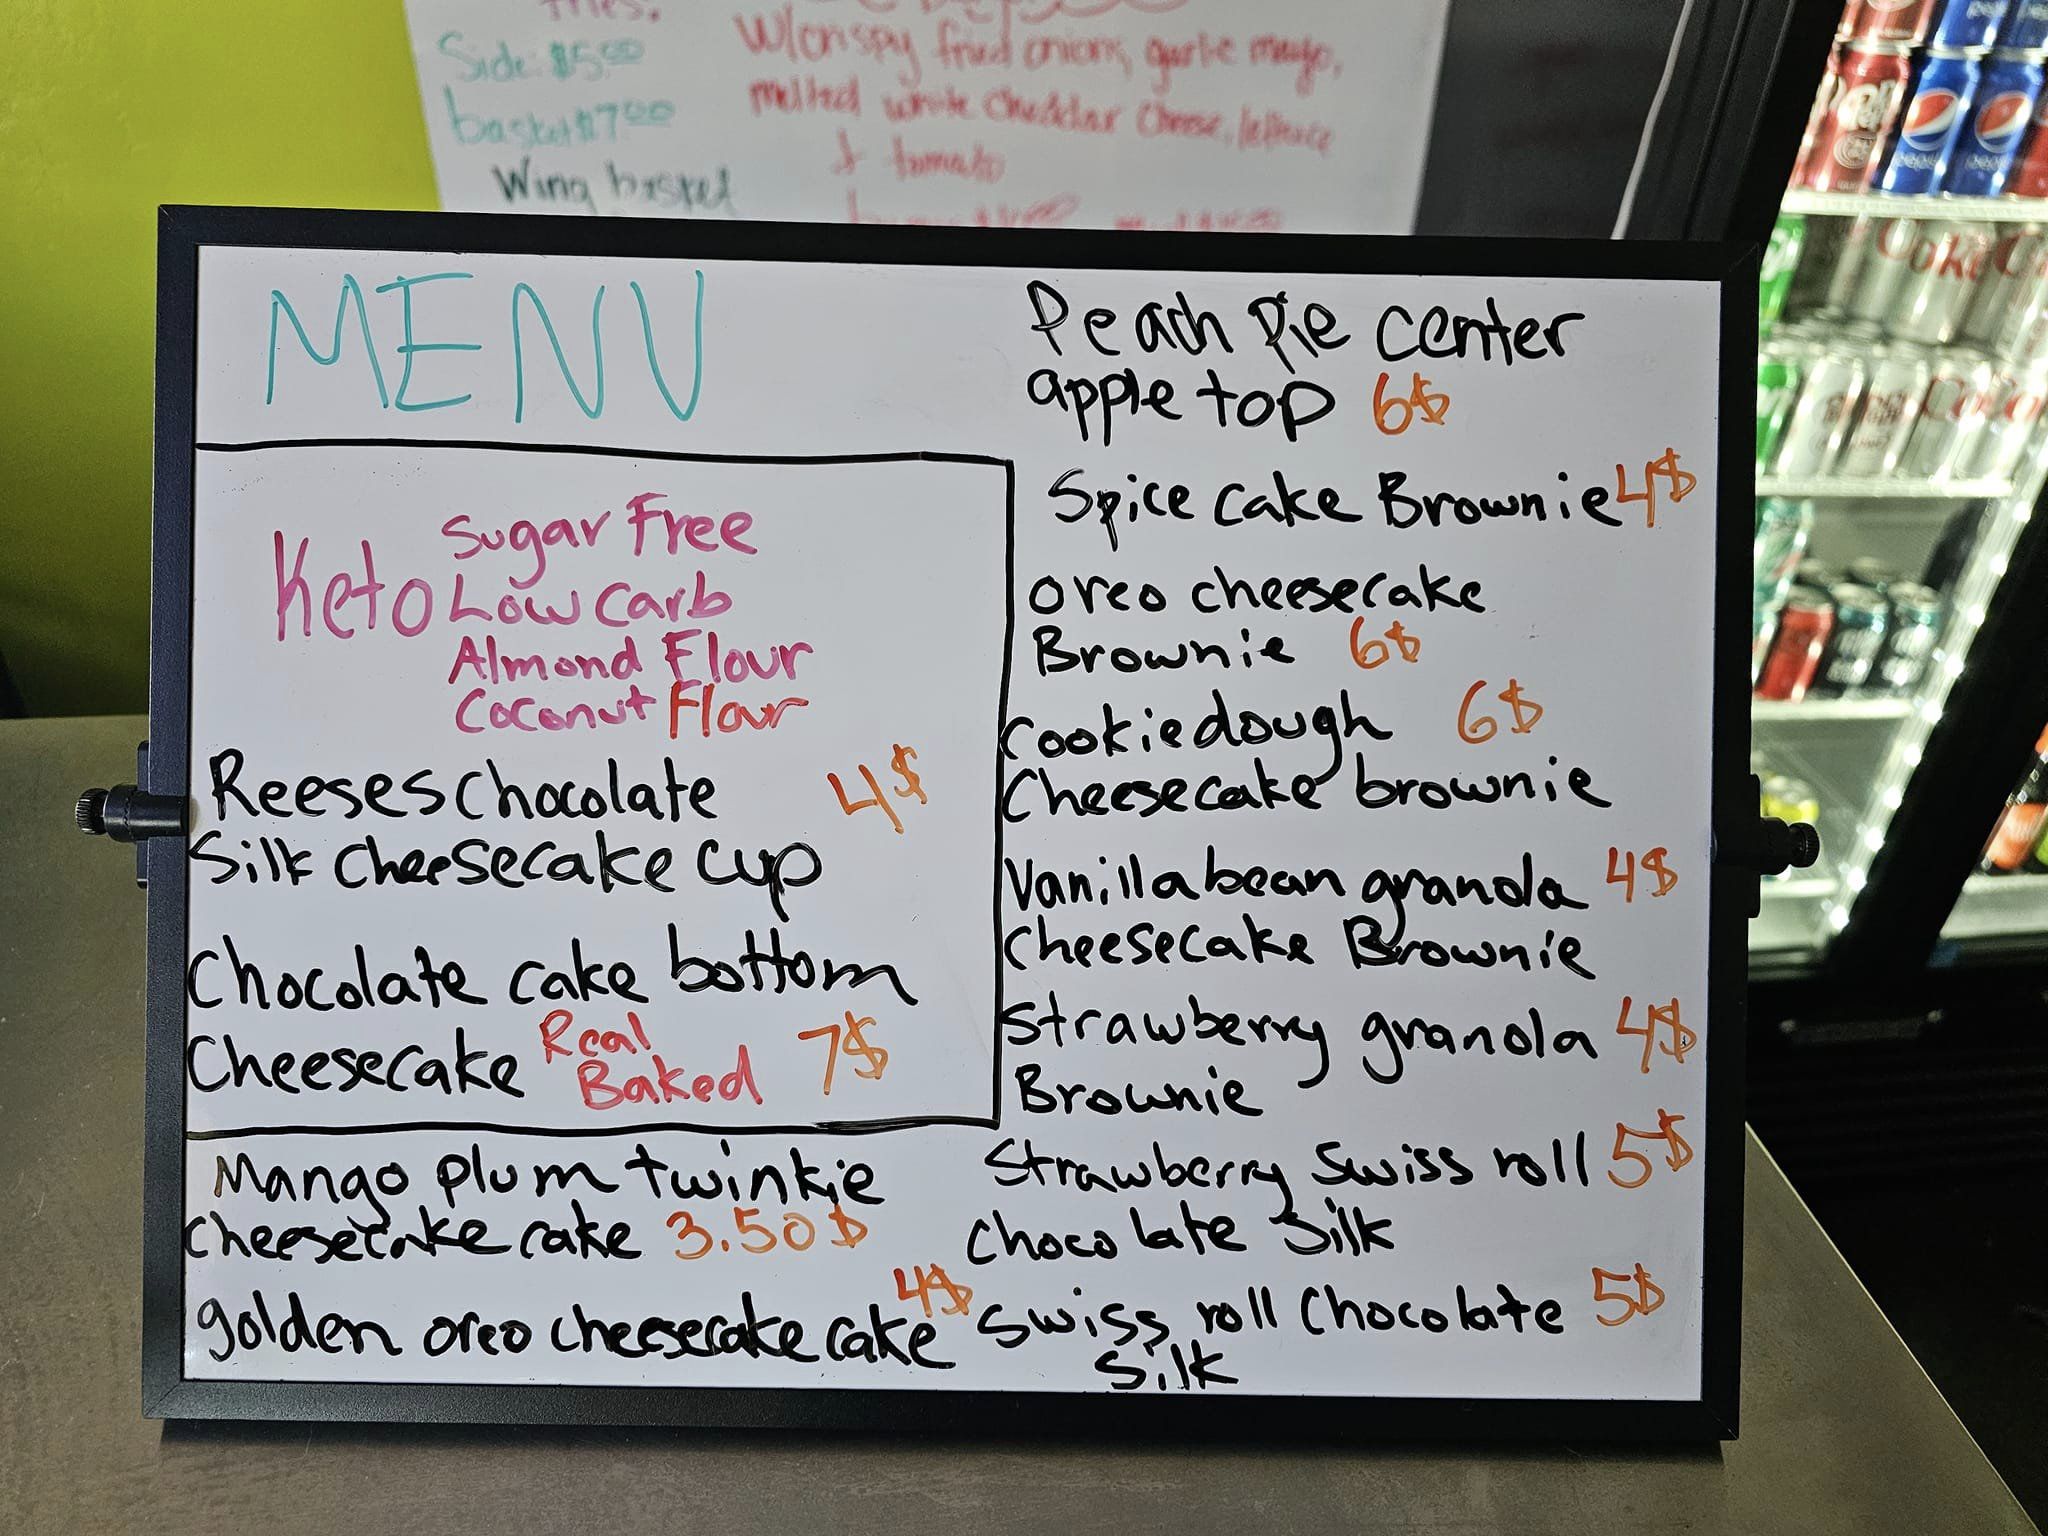 fries.
Side $5.00
basket $7.00
Wing basket
fried onions, garlic mayo,
melted white cheddar cheese, lettuce
& tomato
MENU
Keto
Sugar Free
Low Carb
Almond Flour
Coconut Flour
Reeses chocolate 4$
Silk cheesecake cup
Chocolate cake bottom
Cheesecake Real Baked 7$
Mango plum twinkie
cheesecake cake 3.50$
golden oreo cheesecake cake 4$
Peach pie center
apple top 6$
Spice cake Brownie 4$
oreo cheesecake
Brownie 6$
cookie dough 6$
Cheesecake brownie
Vanilla bean granola 4$
Cheesecake Brownie
Strawberry granola 4$
Brownie
Strawberry Swiss roll 5$
chocolate silk
Swiss roll chocolate 5$
silk
pepsi
pepsi
Coke